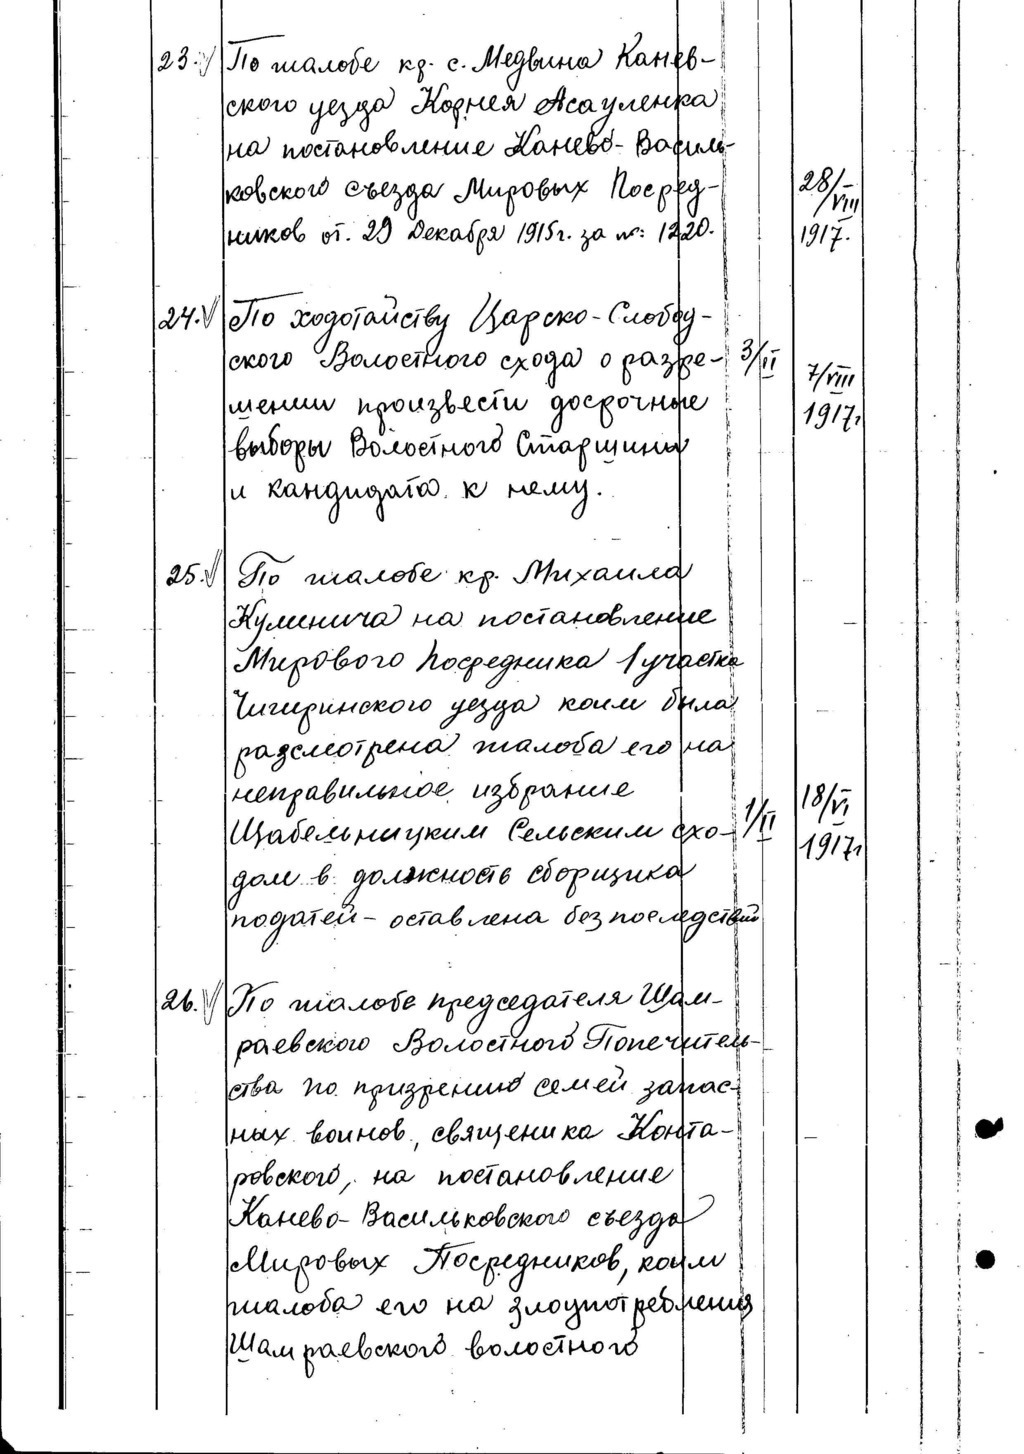 23. По жалобе кр. с. Медвина Канев-
ского уезда Корнея Асауленка
на постановление Канево-Василь-
ковского съезда Мировых Посред-
ников от. 29 Декабря 1915г. за №: 1220.
28/VIII
1917.
24. По ходотайству Царско-Слобод-
ского Волостного схода о разре-
шении произвести досрочные
выборы Волостного Старшины
и кандидата к нему.
3/II
7/VIII
1917г
25. По жалобе кр. Михаила
Кулинича на постановление
Мирового Посредника 1 участка
Чигиринского уезда коим была
разсмотрена жалоба его на
неправильное избрание
Щабельницким Сельским схо-
дом в должность сборщика
податей - оставлена без последствий
1/II
18/VI
1917г
26. По жалобе председателя Шам-
раевского Волостного Попечитель-
ства по призрению семей запас-
ных воинов, священика Конта-
ровского, на постановление
Канево-Васильковского съезда
Мировых Посредников, коим
жалоба его на злоупотребления
Шамраевского волостного